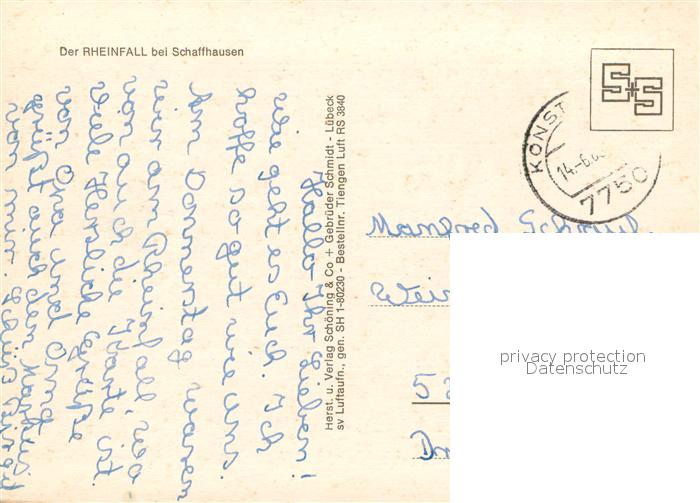 Der RHEINFALL bei Schaffhausen
S+S
KONST
14.-6.
7750
Hallo Ihr Lieben!
wie geht es Euch. Ich
hoffe so gut wie uns.
Am Donnerstag waren
wir am Rheinfall wo
von auch die Karte ist
Viele Herzliche Grüße
von Oma und Oma
grüßt auch den Markus
von mir.
Herst. u. Verlag Schöning & Co + Gebrüder Schmidt - Lübeck
sv Luftaufn., gen. SH 1-80230 - Bestellnr. Tiengen Luft RS 3840
Manfred
Wei
5
privacy protection
Datenschutz